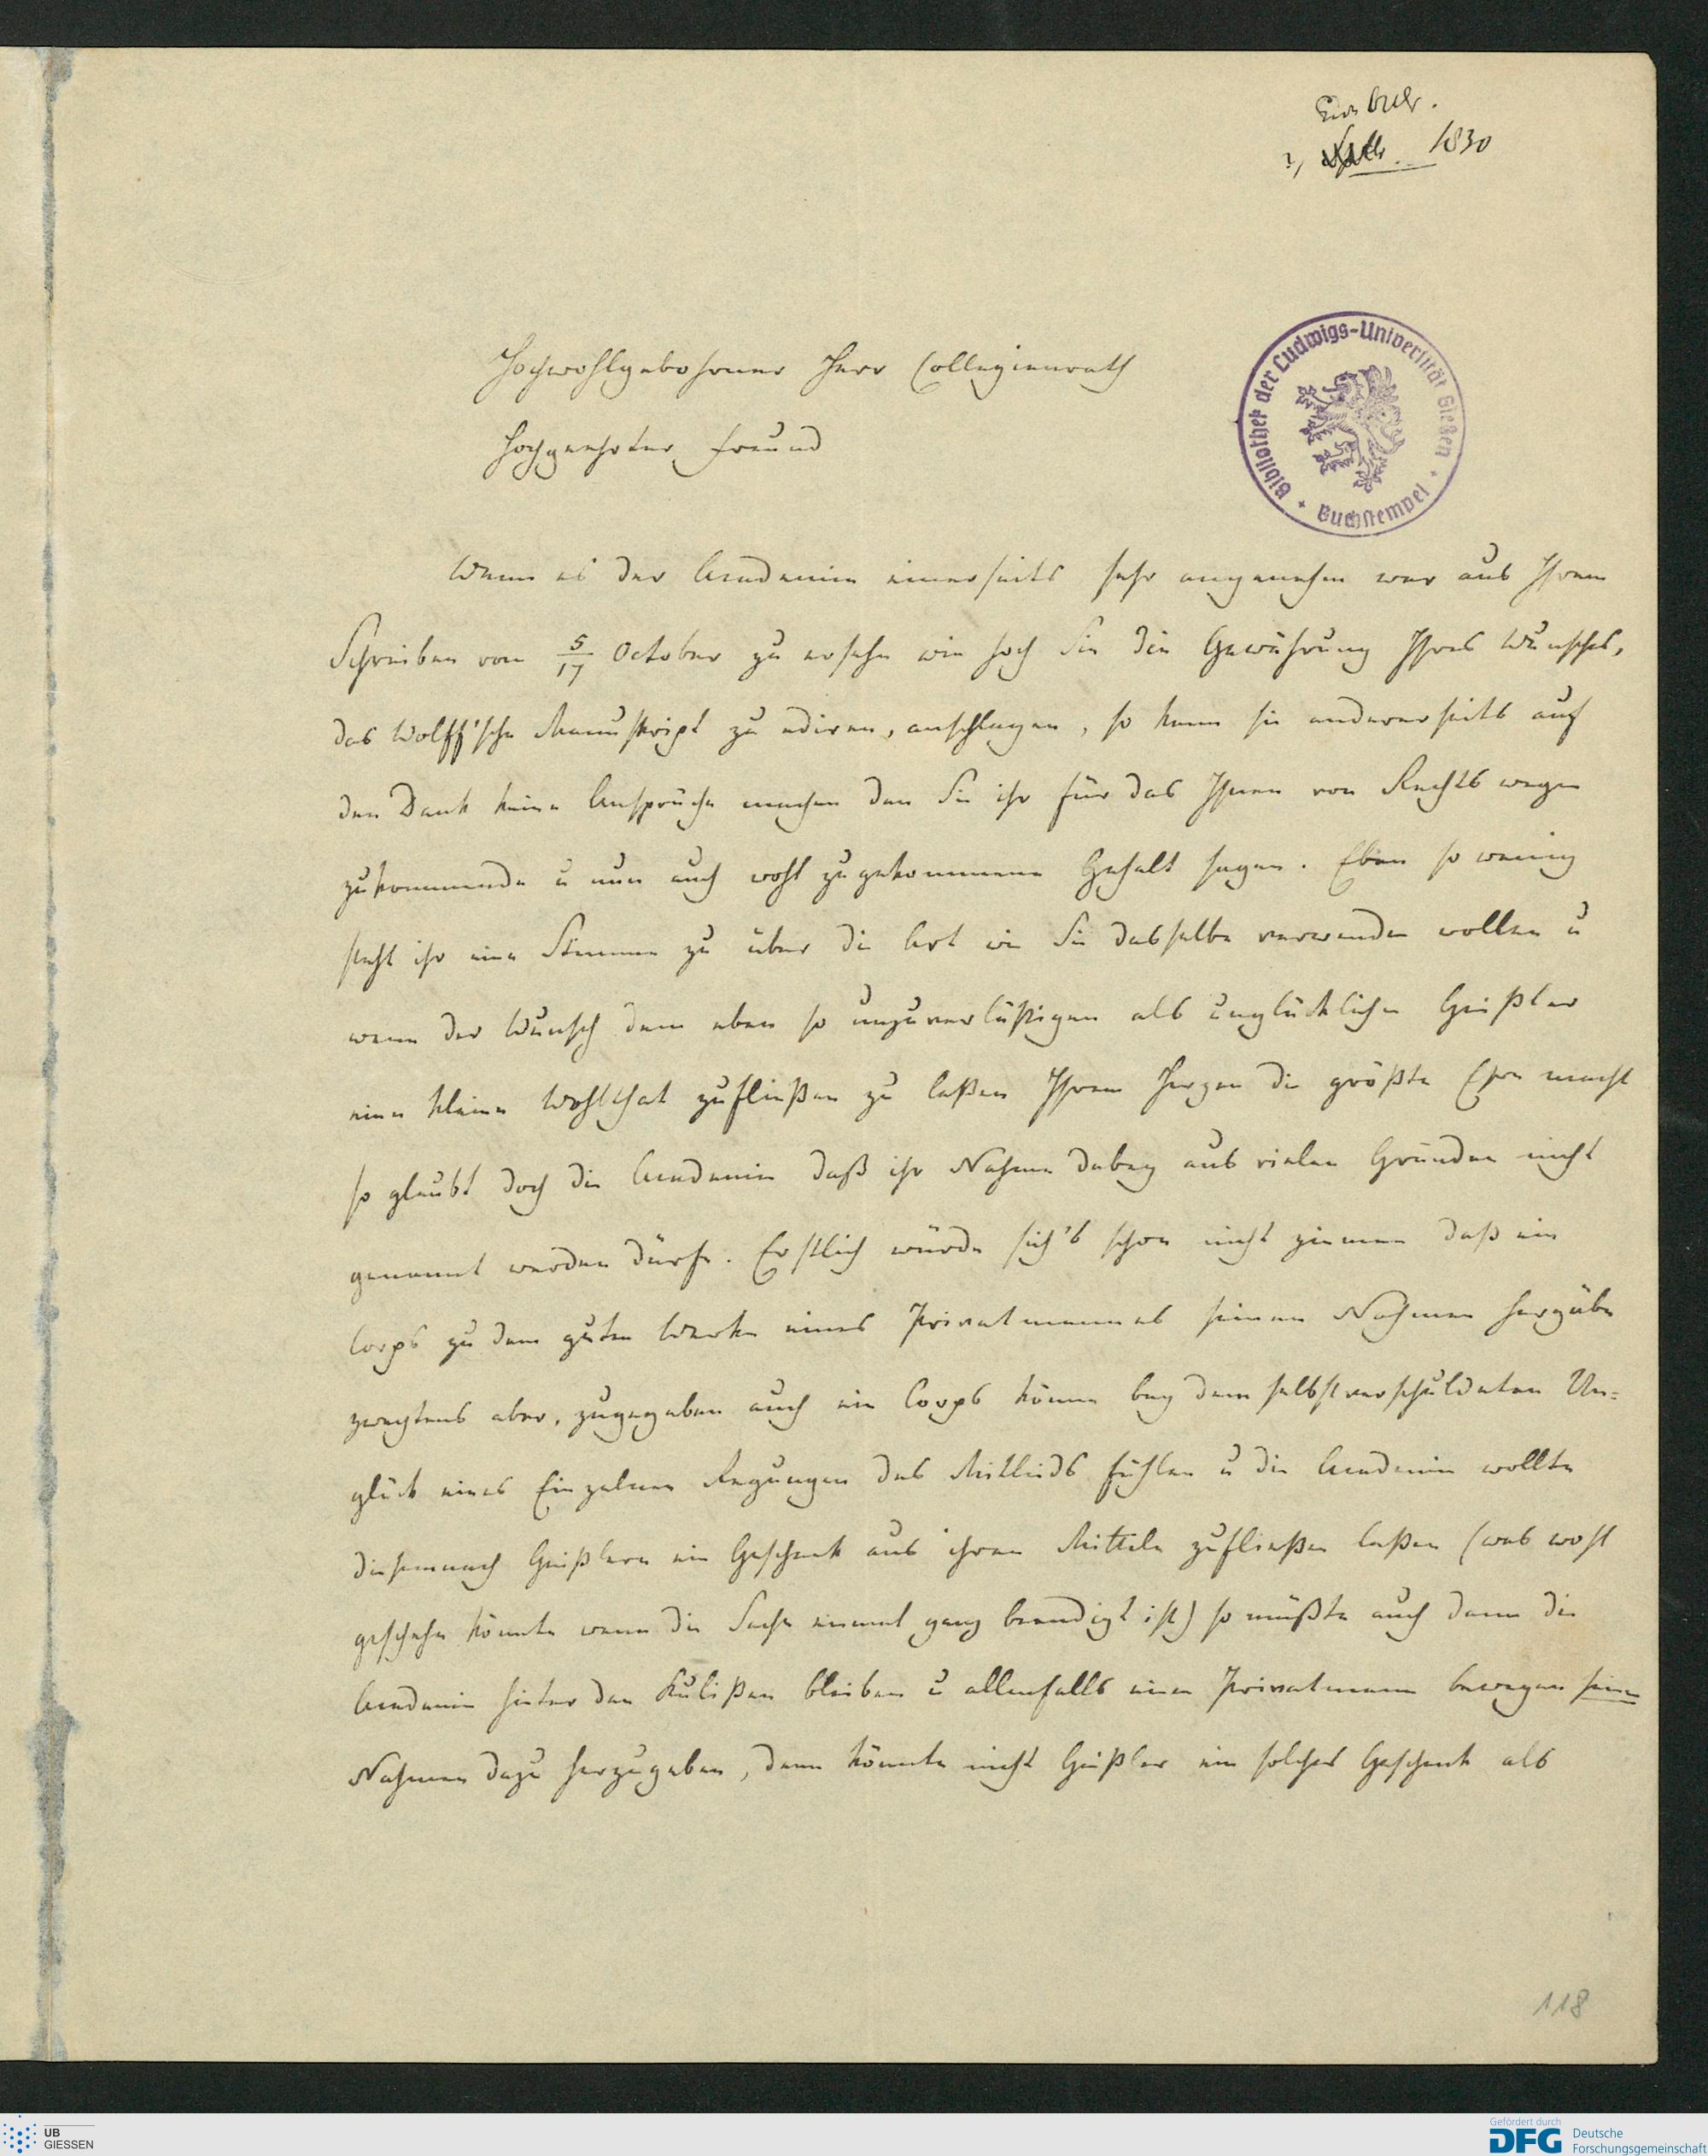 1830
Hochwohlgebohrner Herr Collegienrath
Hochgeehrter Freund
Bibliothek der Ludwigs-Universität Gießen
Buchstempel
Wenn es der Academie einerseits sehr angenehm war aus Ihrem
Schreiben vom 5/17 October zu ersehn wie hoch Sie die Gewährung Ihres Wunsches,
das Wolff'sche Manuskript zu ediren, anschlagen, so kann sie andererseits auf
den Dank keine Ansprüche machen den Sie ihr für das Ihnen von Rechts wegen
zukommende u nun auch wohl zugekommene Gehalt sagen. Eben so wenig
steht ihr eine Stimme zu über die Art wie Sie dasselbe verwenden wollen u
wenn der Wunsch dem eben so unzuverläßigen als unglücklichen Geißler
eine kleine Wohlthat zufließen zu laßen Ihrem Herzen die größte Ehre macht
so glaubt doch die Academie daß ihr Nahme dabey aus vielen Gründen nicht
genannt werden dürfe. Erstlich würde sich's schon nicht ziemen daß ein
Corps zu dem guten Werke eines Privatmannes seinen Nahmen hergäbe
zweytens aber, zugegeben auch ein Corps könne bey dem selbstverschuldeten Un=
glück eines Einzelnen Regungen des Mitleids fühlen u die Academie wollte
diesemnach Geißlern ein Geschenk aus ihren Mitteln zufließen laßen (was wohl
geschehn könnte wenn die Sache einmal ganz beendigt ist) so müßte auch dann die
Academie hinter den Kulißen bleiben u allenfalls einen Privatmann bewegen seinen
Nahmen dazu herzugeben, denn könnte nicht Geißler ein solches Geschenk als
118
UB
GIESSEN
Gefördert durch
DFG Deutsche
Forschungsgemeinschaft